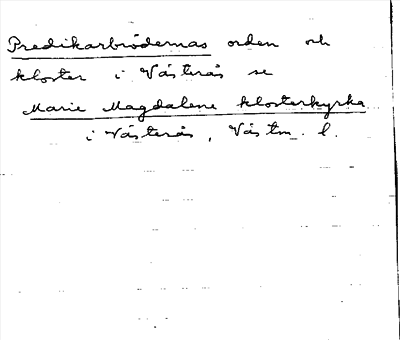 Predikarbrödernas orden och
kloster i Västerås se
Marie Magdalene klosterkyrka
i Västerås, Västm. l.